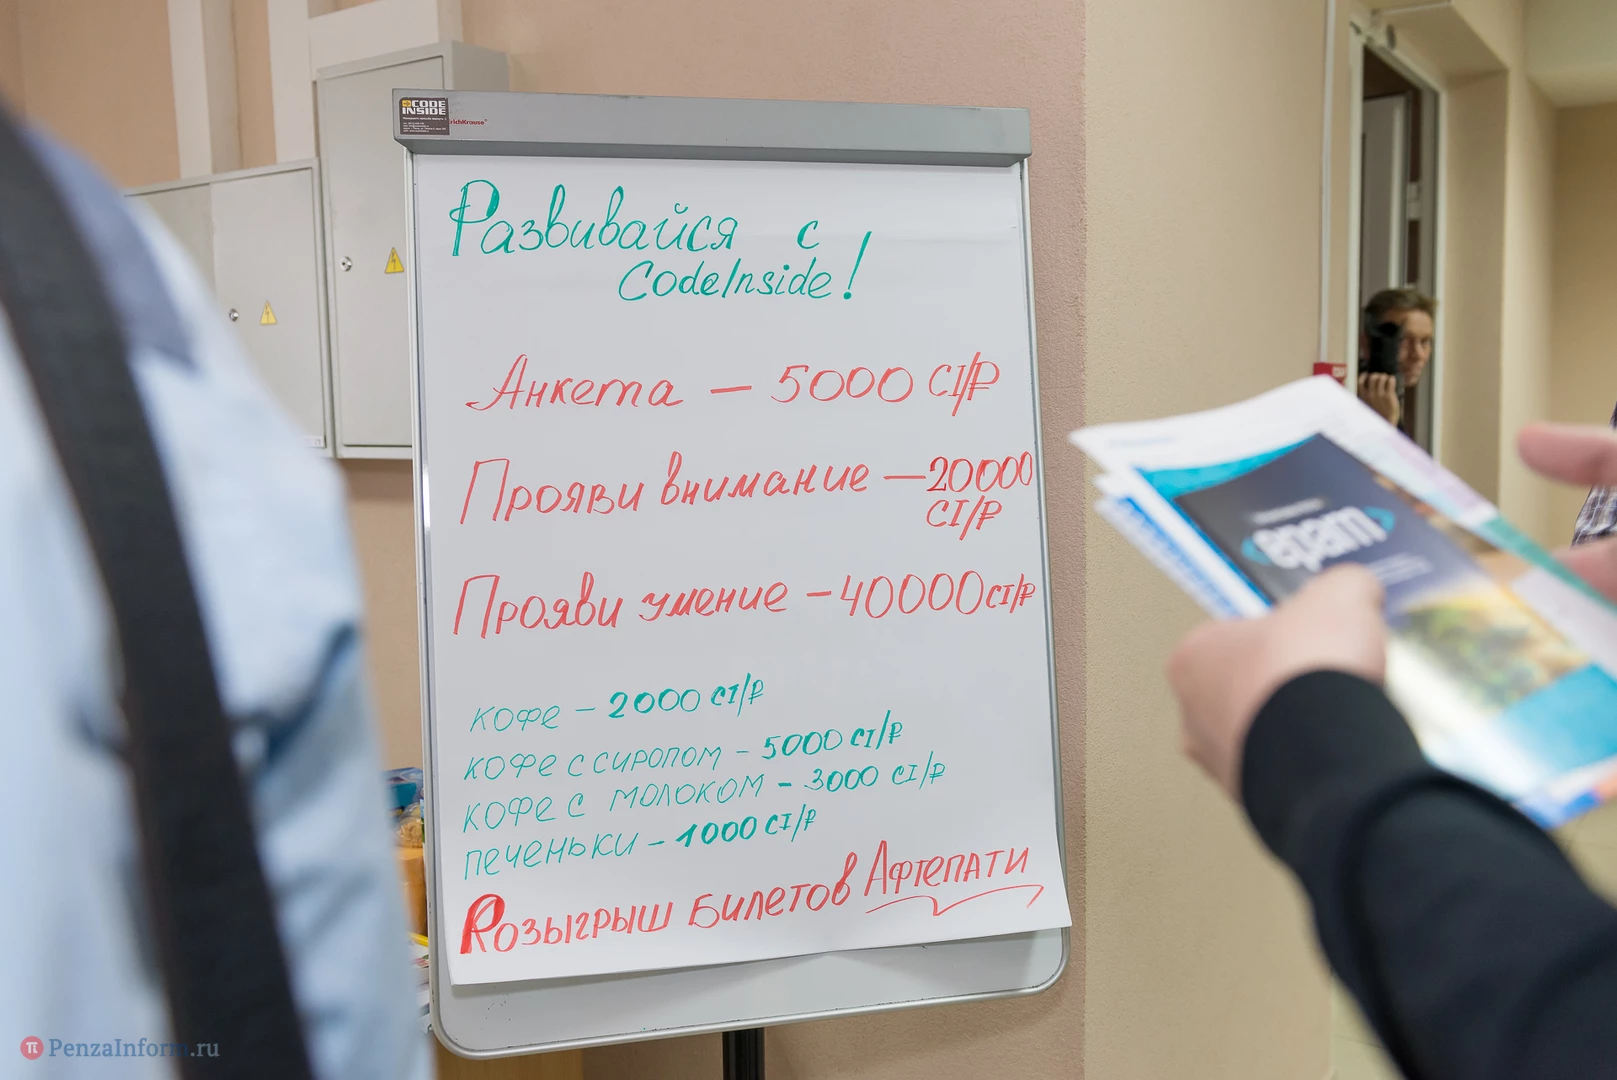 CODE
INSIDE
ErichKrause
Развивайся с
CodeInside!
Анкета — 5000 CI/₽
Прояви внимание — 20000
CI/₽
Прояви умение — 40000 CI/₽
кофе – 2000 CI/₽
кофе с сиропом – 5000 CI/₽
кофе с молоком – 3000 CI/₽
печеньки – 1000 CI/₽
Розыгрыш билетов Афтепати
<epam>
PenzaInform.ru